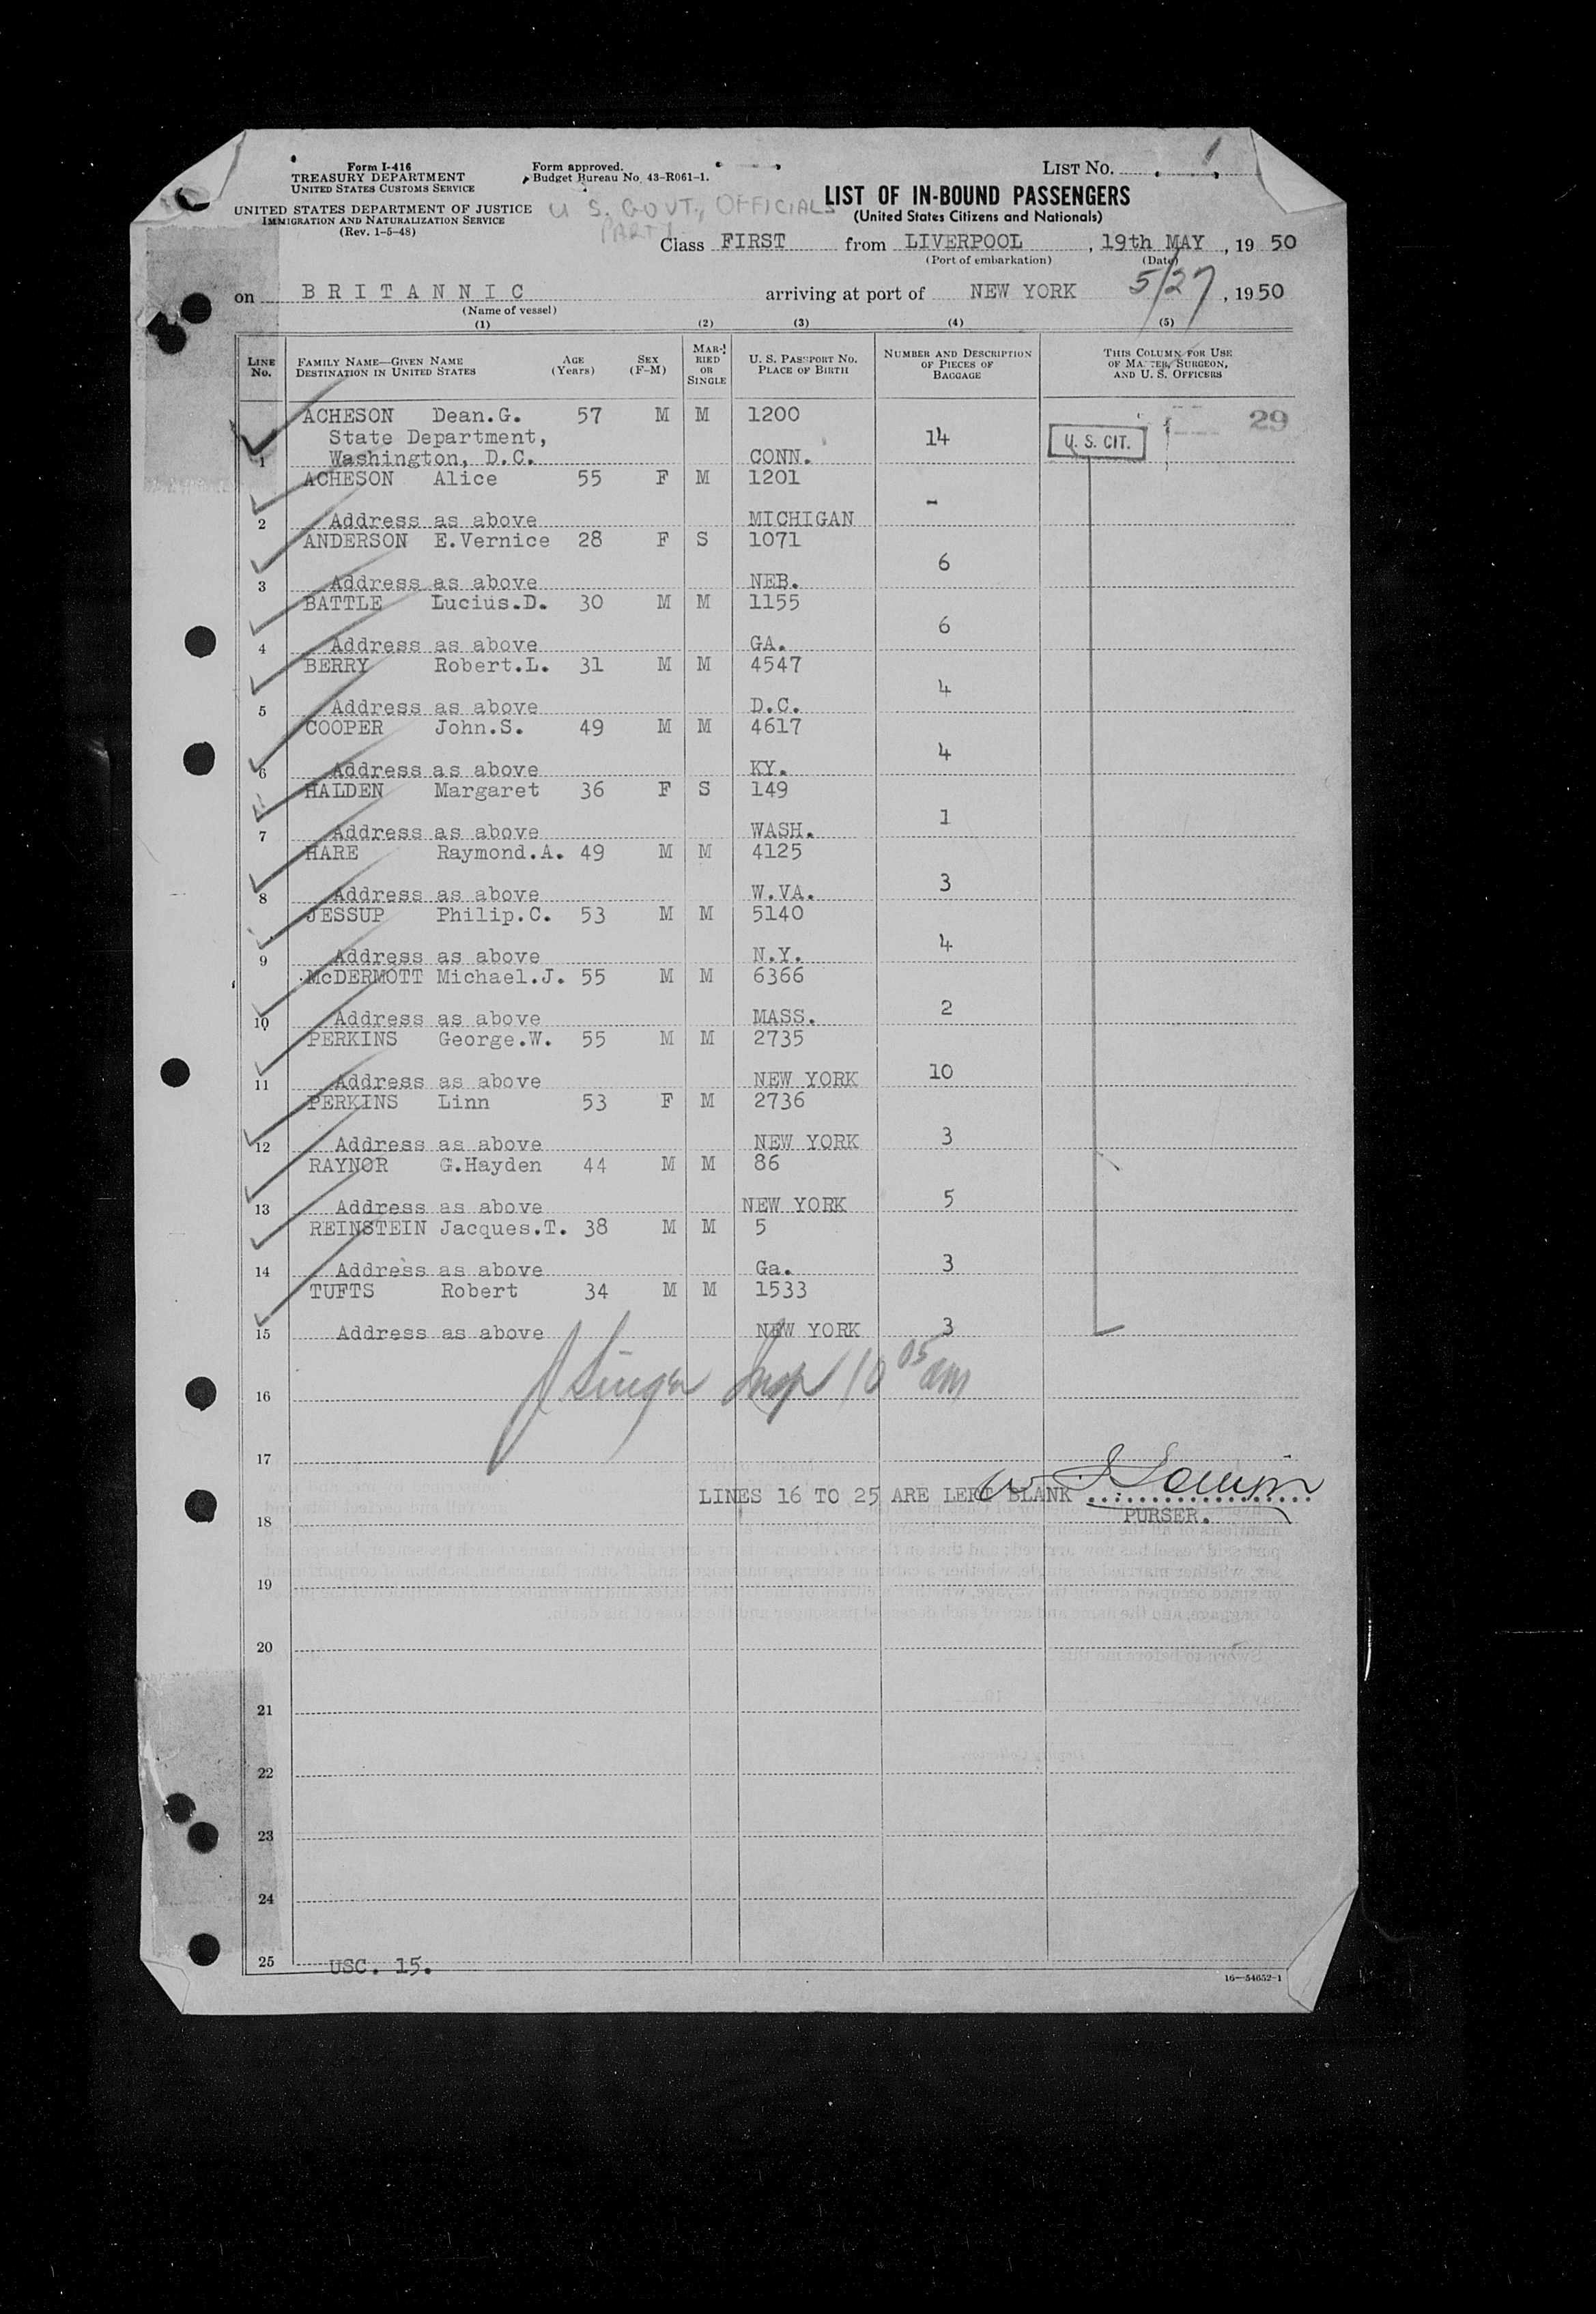 Form I-416
TREASURY DEPARTMENT
UNITED STATES CUSTOMS SERVICE
UNITED STATES DEPARTMENT OF JUSTICE
IMMIGRATION AND NATURALIZATION SERVICE
(Rev. 1-5-48)
Form approved.
Budget Bureau No. 43-R061-1.
U.S. GOVT., OFFICIALS
PART 1
LIST NO. 1
LIST OF IN-BOUND PASSENGERS
(United States Citizens and Nationals)
Class FIRST from LIVERPOOL, 19th MAY, 1950
(Port of embarkation) (Date)
on BRITANNIC arriving at port of NEW YORK 5/27, 1950
(Name of vessel)
(1) (2) (3) (4) (5)
LINE NO. FAMILY NAME—GIVEN NAME DESTINATION IN UNITED STATES AGE (Years) SEX (F-M) MARRIED OR SINGLE U. S. PASSPORT NO. PLACE OF BIRTH NUMBER AND DESCRIPTION OF PIECES OF BAGGAGE THIS COLUMN FOR USE OF MASTER, SURGEON, AND U. S. OFFICERS
ACHESON Dean.G. 57 M M 1200 29
State Department, 14 U. S. CIT.
1 Washington, D.C. CONN.
ACHESON Alice 55 F M 1201
-
2 Address as above MICHIGAN
ANDERSON E.Vernice 28 F S 1071
6
3 Address as above NEB.
BATTLE Lucius.D. 30 M M 1155
6
4 Address as above GA.
BERRY Robert.L. 31 M M 4547
4
5 Address as above D.C.
COOPER John.S. 49 M M 4617
4
6 Address as above KY.
HALDEN Margaret 36 F S 149
1
7 Address as above WASH.
HARE Raymond.A. 49 M M 4125
3
8 Address as above W.VA.
JESSUP Philip.C. 53 M M 5140
4
9 Address as above N.Y.
McDERMOTT Michael.J. 55 M M 6366
2
10 Address as above MASS.
PERKINS George.W. 55 M M 2735
10
11 Address as above NEW YORK
PERKINS Linn 53 F M 2736
3
12 Address as above NEW YORK
RAYNOR G.Hayden 44 M M 86
5
13 Address as above NEW YORK
REINSTEIN Jacques.T. 38 M M 5
3
14 Address as above Ga.
TUFTS Robert 34 M M 1533
15 Address as above NEW YORK 3
J Singer Insp 10 05 am
16
17
LINES 16 TO 25 ARE LEFT BLANK
PURSER.
18
19
20
21
22
23
24
25 USC. 15.
16—54652-1